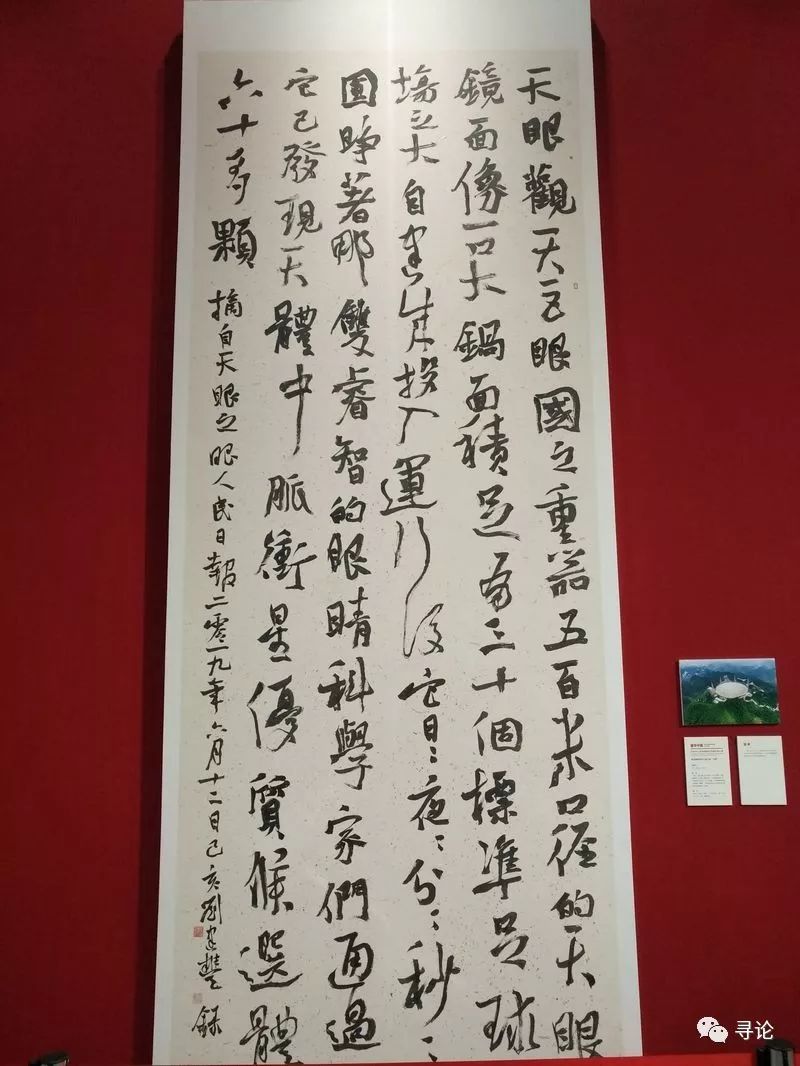 天眼觀天巨眼國之重器五百米口徑的天眼
鏡面像一口大鍋面積足有三十個標準足球
場之大自建成投入運行後它日〻夜〻分〻秒〻
圓睜著那雙睿智的眼睛科學家們通過
它已發現天體中脈衝星優質候選體
六十多顆 摘自天眼之眼人民日報二零一九年六月十二日己亥劉建豐錄
寻论